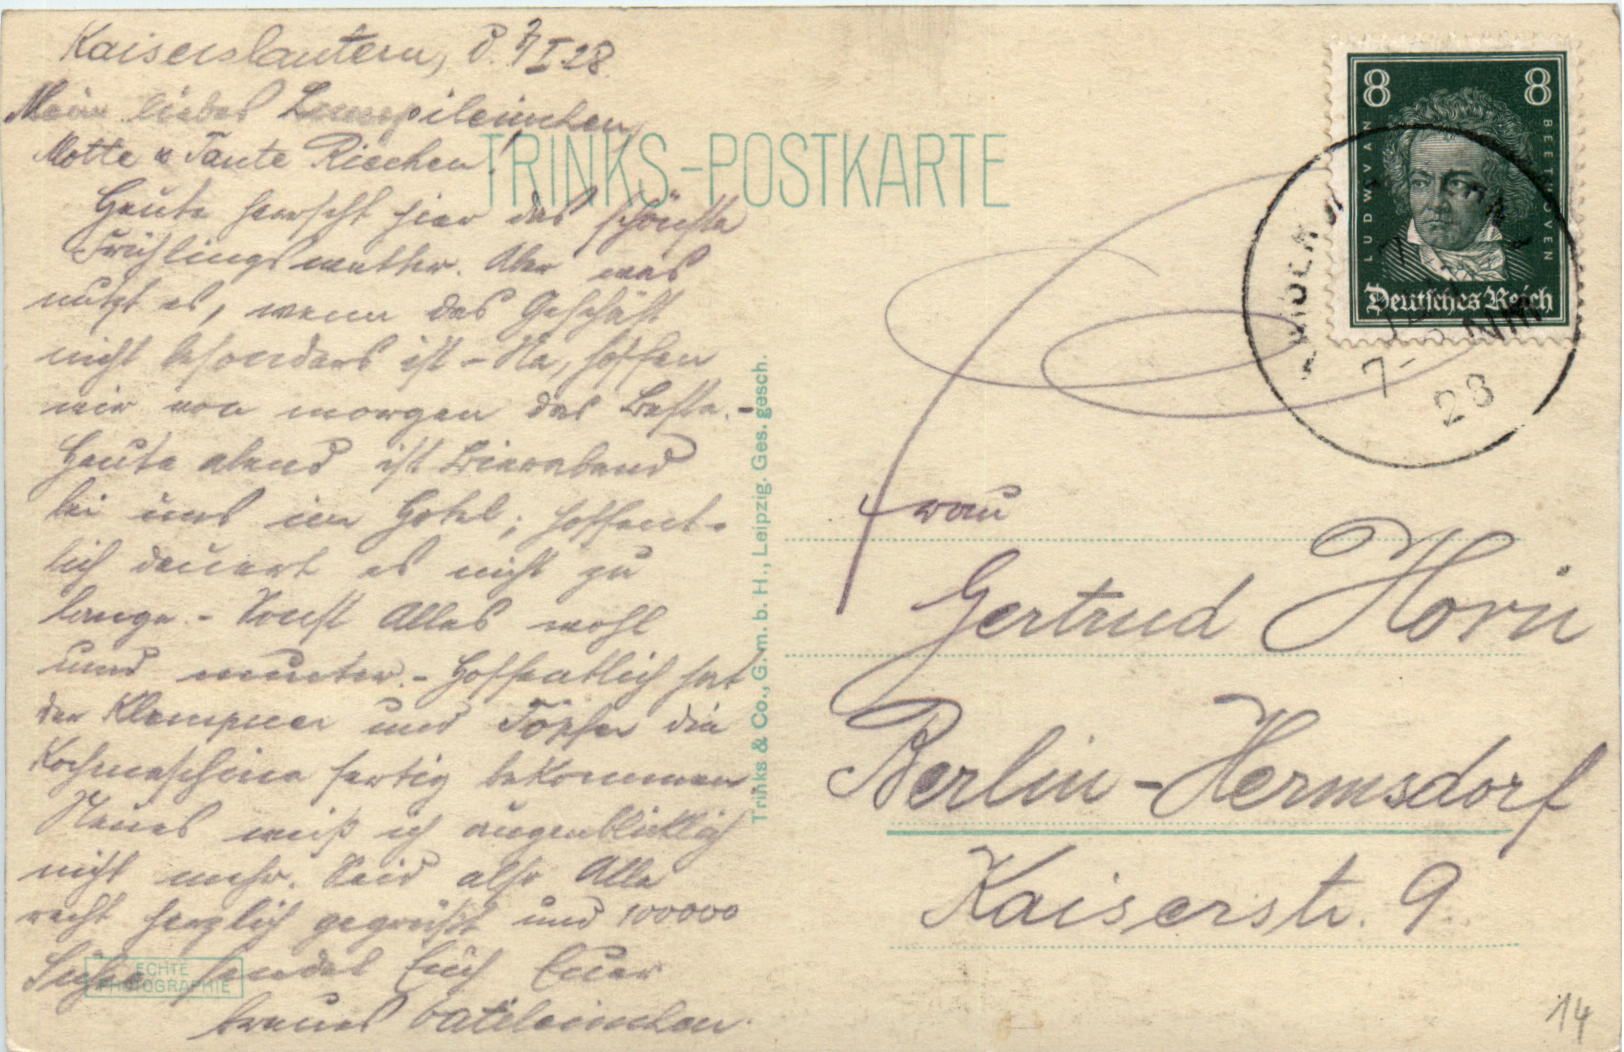 Kaiserslautern, d. 7/I 28.
Mein liebes Lumpileinchen,
Motte u Tante Riechen!
Heute herrscht hier das schönste
Frühlingswetter. Aber was
nutzt es, wenn das Geschäft
nicht besonders ist – Na, hoffen
wir von morgen das Beste. –
Heute abend ist Bierabend
bei uns im Hotel; hoffent-
lich dauert es nicht zu
lange. – Sonst Alles wohl
und munter. – Hoffentlich hat
der Klempner und Töpfer die
Kochmaschine fertig bekommen
Neues weiß ich augenblicklich
nicht mehr. Seid also Alle
recht herzlich gegrüßt und 100000
Küsse sendet Euch Euer
treues Vatileinchen.
TRINKS-POSTKARTE
Trinks & Co., G. m. b. H., Leipzig. Ges. gesch.
ECHTE
PHOTOGRAPHIE
8 8
LUDWIG VAN BEETHOVEN
Deutsches Reich
7-8 NM
28
Frau
Gertrud Horn
Berlin-Hermsdorf
Kaiserstr. 9
14